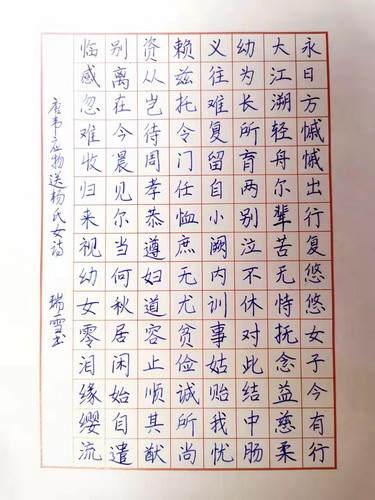 永日方慽慽出行复悠悠女子今有行
大江溯轻舟尔辈苦无恃抚念益慈柔
幼为长所育两别泣不休对此结中肠
义往难复留自小阙内训事姑贻我忧
赖兹托令门任恤庶无尤贫俭诚所尚
资从岂待周孝恭遵妇道容止顺其猷
别离在今晨见尔当何秋居闲始自遣
临感忽难收归来视幼女零泪缘缨流
唐韦应物送杨氏女诗 瑞雪